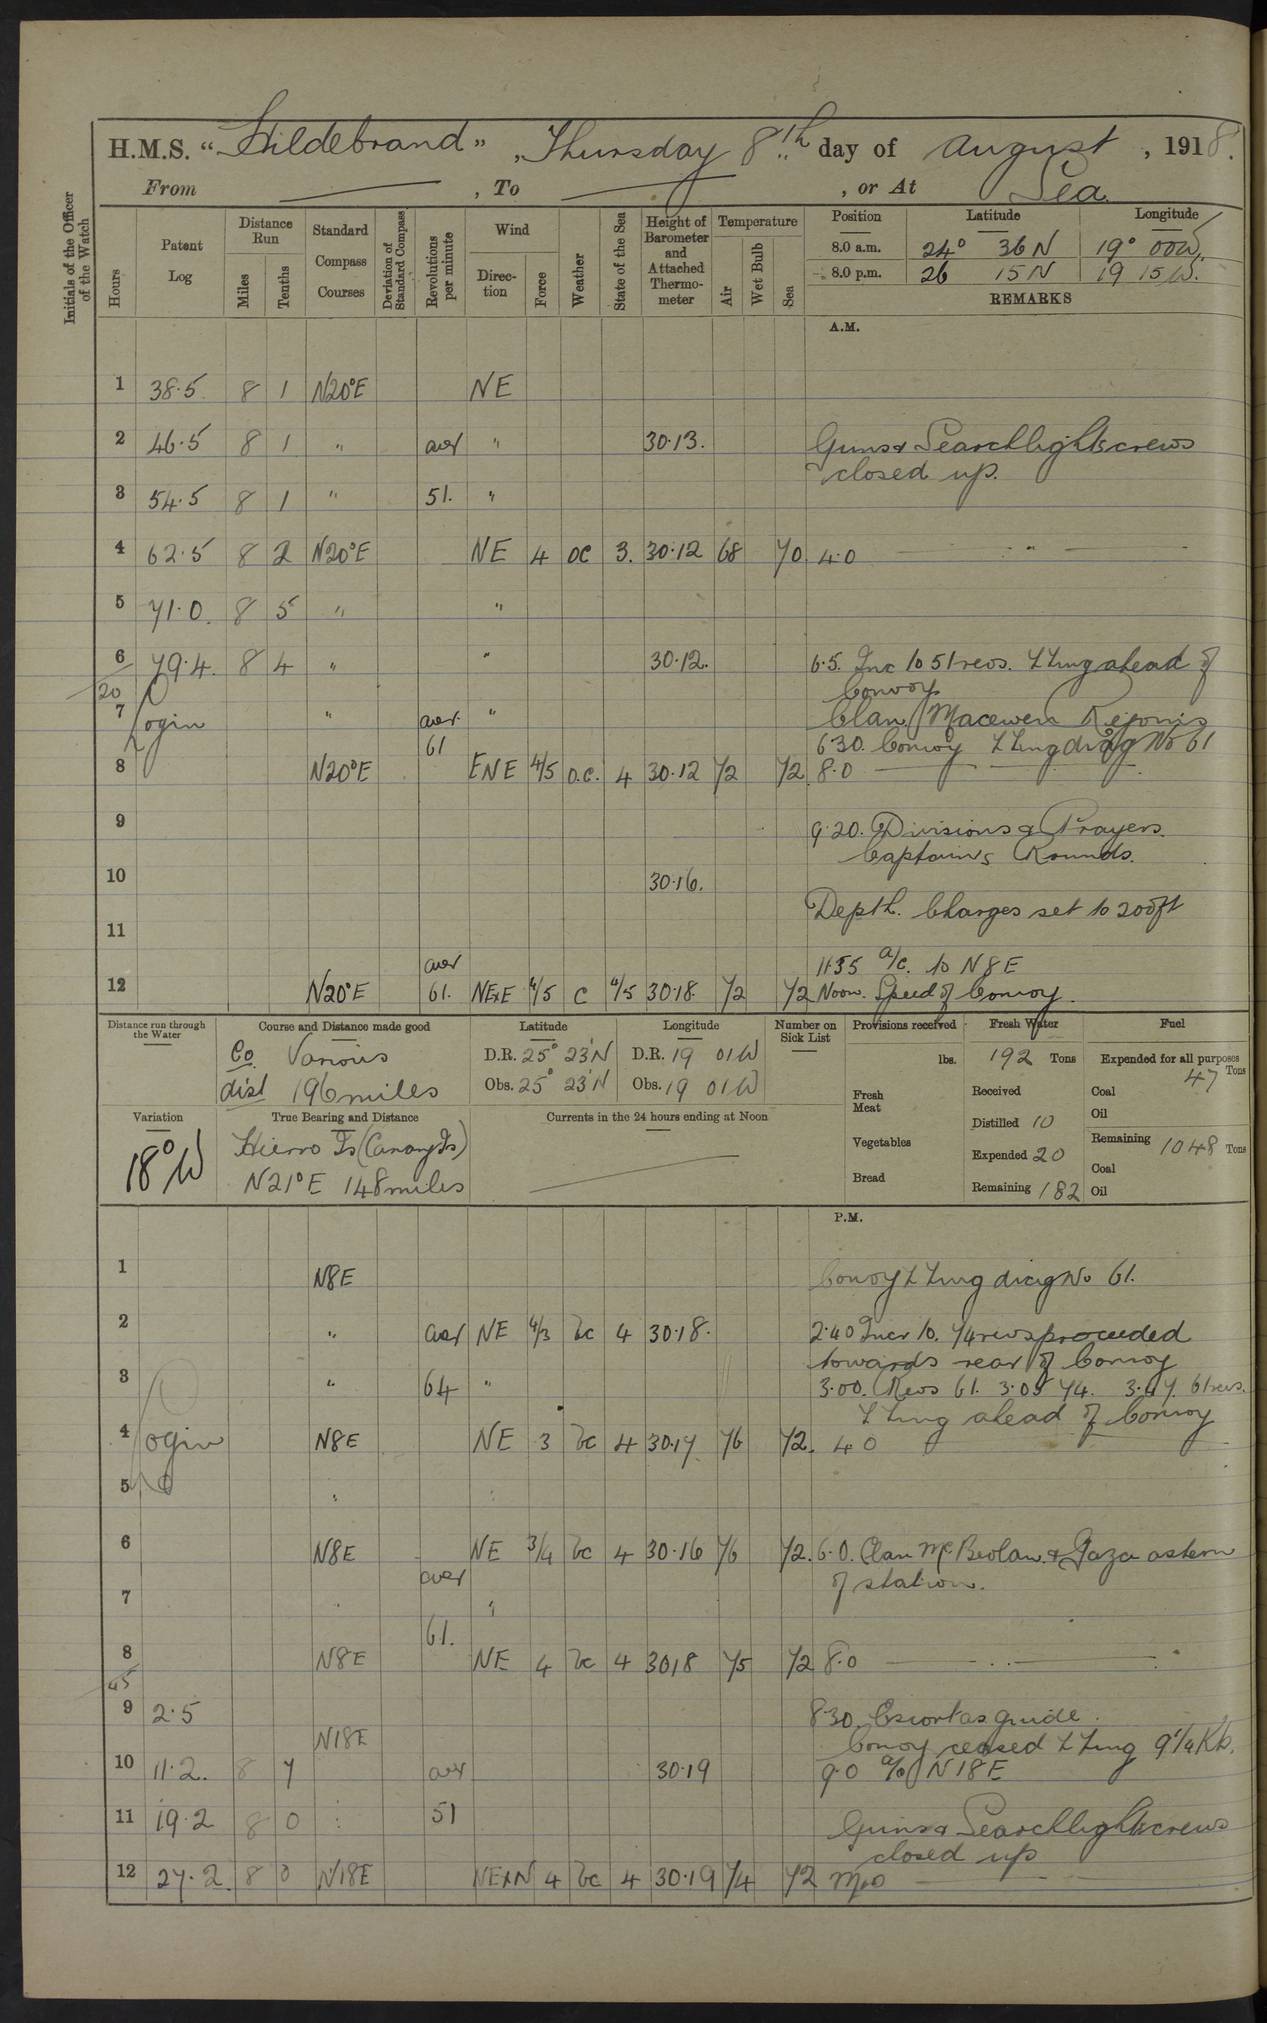 H.M.S. "Hildebrand", Thursday 8th day of August, 1918.
From ——— , To ——— , or At Sea.
Initials of the Officer of the Watch
Hours
Patent Log
Distance Run
Miles
Tenths
Standard Compass Courses
Deviation of Standard Compass
Revolutions per minute
Wind
Direction
Force
Weather
State of the Sea
Height of Barometer and Attached Thermometer
Temperature
Air
Wet Bulb
Sea
Position Latitude Longitude
8.0 a.m. 24° 36 N 19° 00 W.
8.0 p.m. 26 15 N 19 15 W.
REMARKS
A.M.
1 38.5 8 1 N20°E NE
2 46.5 8 1 " aver " 30.13. Guns & Searchlight crews
closed up.
3 54.5 8 1 " 51. "
4 62.5 8 2 N20°E NE 4 oc 3. 30.12 68 70. 4.0 — " —
5 71.0. 8 5 " "
6 79.4. 8 4 " " 30.12. 6.5. Inc to 51 revs. ZZing ahead of
20 Convoy
7 Login " aver. " Clan Macewen Rejoins
61 6.30. Convoy ZZing diag No 61
8 N20°E ENE 4/5 o.c. 4 30.12 72 72. 8.0
9 9.20. Divisions & Prayers.
Captains Rounds.
10 30.16.
Depth Charges set to 200ft
11
aver 11.55 a/c. to N8E
12 N20°E 61. NExE 4/5 c 4/5 30.18. 72 72 Noon. Speed of Convoy.
Distance run through the Water
Course and Distance made good
Co Various
dist 196 miles
Latitude
D.R. 25° 23'N
Obs. 25° 23'N
Longitude
D.R. 19 01 W
Obs. 19 01 W
Number on Sick List
Provisions received
lbs.
Fresh Meat
Vegetables
Bread
Fresh Water
192 Tons
Received
Distilled 10
Expended 20
Remaining 182
Fuel
Expended for all purposes
47 Tons
Coal
Oil
Remaining 1048 Tons
Coal
Oil
Variation
18° W
True Bearing and Distance
Hierro Is (Canary Is)
N21°E 148 miles
Currents in the 24 hours ending at Noon
P.M.
1 N8E Convoy ZZing diag No 61.
2 " aver NE 4/3 bc 4 30.18. 2.40 Incr to. 74 revs proceeded
towards rear of Convoy
3 " 64 " 3.00. Revs 61. 3.05 74. 3.47. 61 revs.
ZZing ahead of Convoy
4 Login N8E NE 3 bc 4 30.17 76 72. 4.0
5 " "
6 N8E NE 3/4 bc 4 30.16 76 72. 6.0. Clan McBeolan & Gaza astern
aver of station.
7 " "
61.
8 N8E NE 4 bc 4 30 18 75 72 8.0
45
9 2.5 8.30. Escort as guide.
N18E Convoy ceased ZZing 9¼ Kts.
10 11.2. 8 7 aver 30.19 9.0 a/c N18E
11 19.2 8 0 " 51 Guns & Searchlight crews
closed up
12 27.2. 8 0 N18E NExN 4 bc 4 30.19 74 72